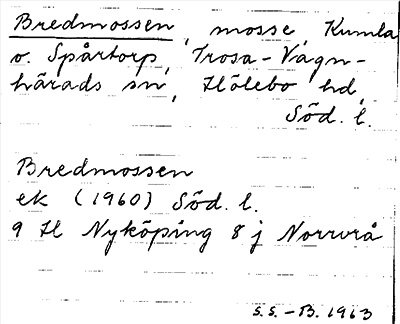 Bredmossen, mosse, Kumla
o. Spårtorp, Trosa-Vagn-
härads sn, Hölebo hd,
Söd. l.
Bredmossen
ek (1960) Söd. l.
9 H Nyköping 8 j Norrvrå
S.S. - B. 1963